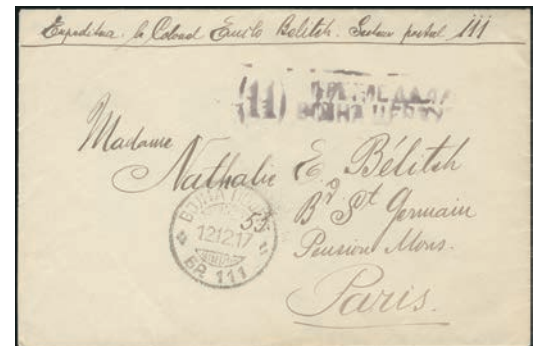 Expediteur. le Colonel Emilo Belitch. Secteur postal 111
(11)
Madame
Nathalie E. Bélitch
Bd St Germain
53
Pension Mons.
Paris.
ВОЈНА ПОШТА
12 12 17
БР. 111